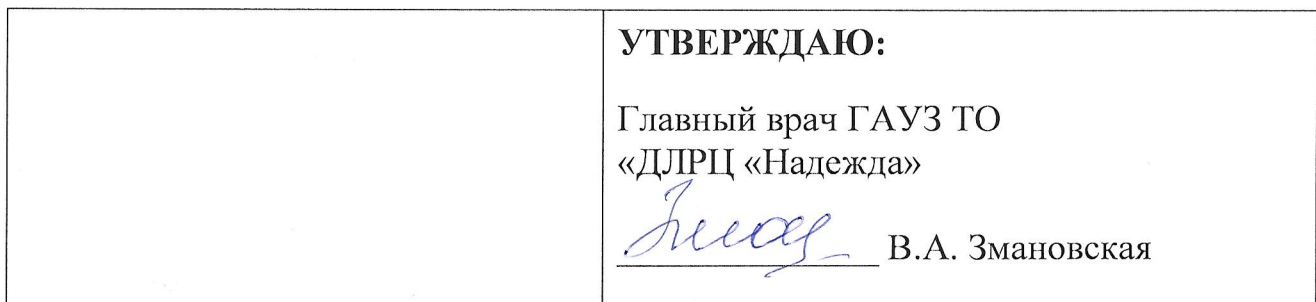 УТВЕРЖДАЮ:
Главный врач ГАУЗ ТО
«ДЛРЦ «Надежда»
В.А. Змановская